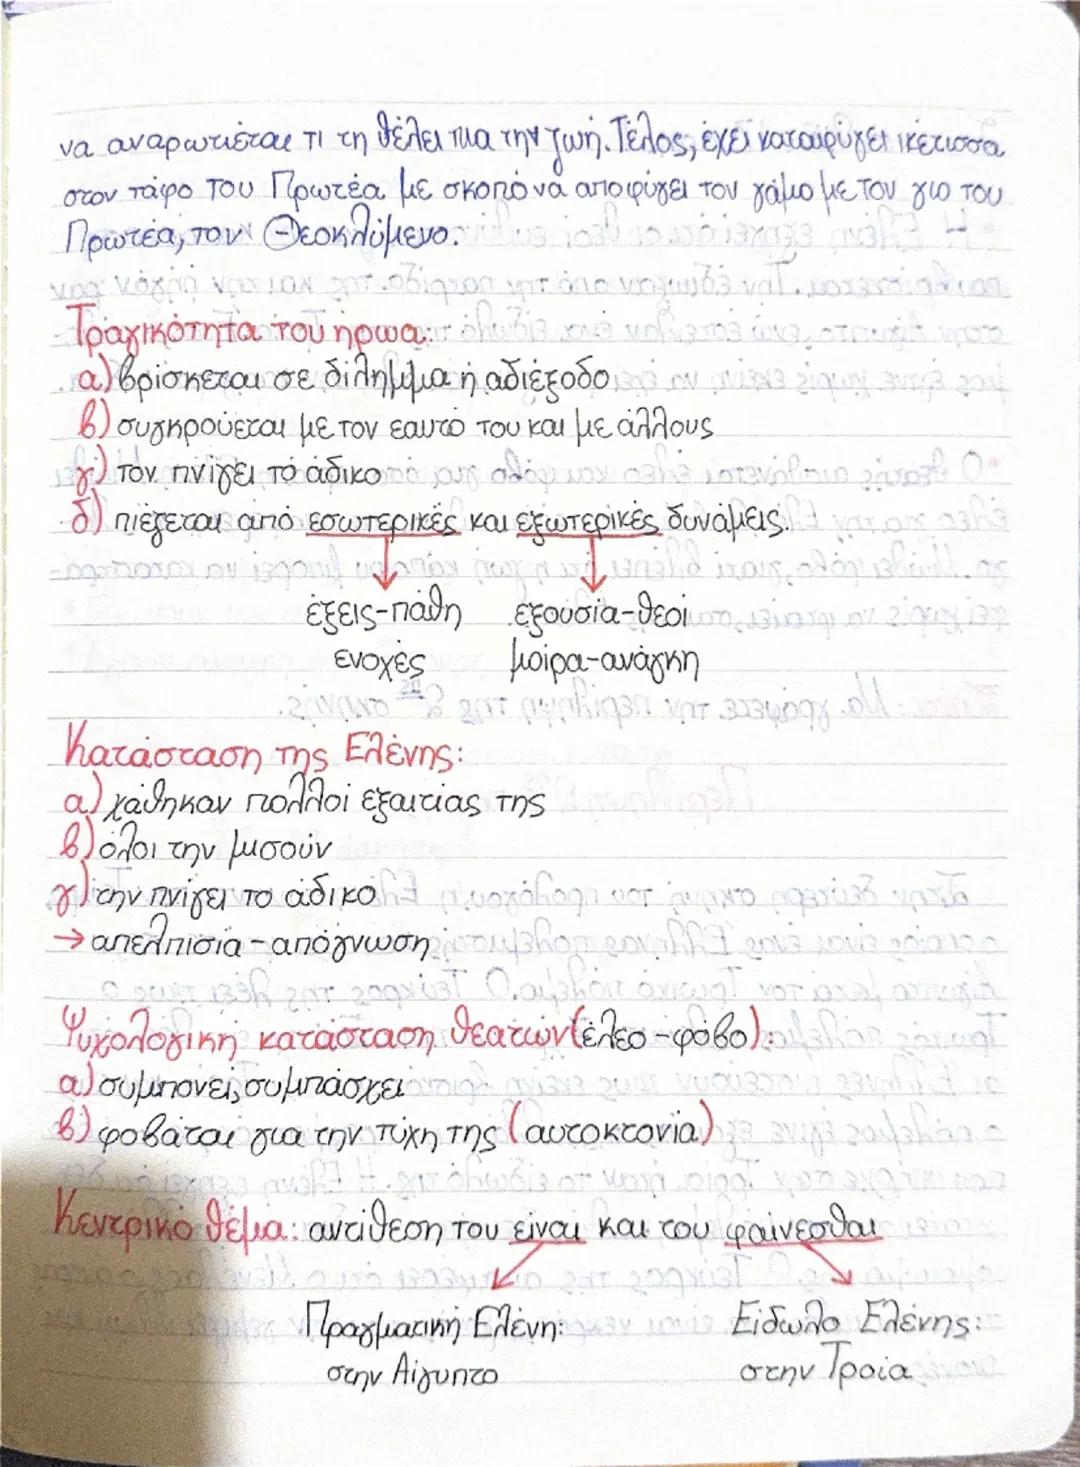 να αναρωτιέται τι τη θέλει πια την ζωή. Τέλος, έχει καταφύγει ικέτισσα
στον τάφο του Πρωτέα με σκοπό να αποφύγει τον γάμο με τον γιο του
Πρωτέα, τον Θεοκλύμενο.
Τραγικότητα του ήρωα:
α) βρίσκεται σε δίλημμα ή αδιέξοδο
β) συγκρούεται με τον εαυτό του και με άλλους
γ) τον πνίγει το άδικο
δ) πιέζεται από εσωτερικές και εξωτερικές δυνάμεις.
έξεις-πάθη εξουσία-θεοί
ενοχές μοίρα-ανάγκη
Κατάσταση της Ελένης:
α) χάθηκαν πολλοί εξαιτίας της
β) όλοι την μισούν
γ) την πνίγει το άδικο
→ απελπισία - απόγνωση
Ψυχολογική κατάσταση θεατών (έλεο - φόβο):
α) συμπονεί, συμπάσχει
β) φοβάται για την τύχη της (αυτοκτονία)
Κεντρικό θέμα: αντίθεση του είναι και του φαίνεσθαι
Πραγματική Ελένη: Είδωλο Ελένης:
στην Αίγυπτο στην Τροία